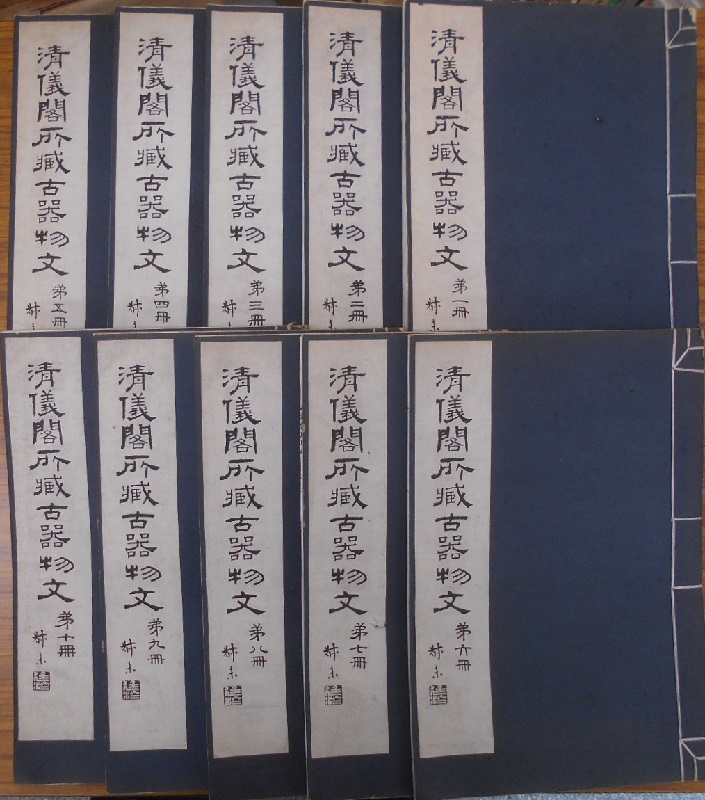 清儀閣所藏古器物文
第一冊
叔未
清儀閣所藏古器物文
第二冊
叔未
清儀閣所藏古器物文
第三冊
叔未
清儀閣所藏古器物文
第四冊
叔未
清儀閣所藏古器物文
第五冊
叔未
清儀閣所藏古器物文
第六冊
叔未
清儀閣所藏古器物文
第七冊
叔未
清儀閣所藏古器物文
第八冊
叔未
清儀閣所藏古器物文
第九冊
叔未
清儀閣所藏古器物文
第十冊
叔未